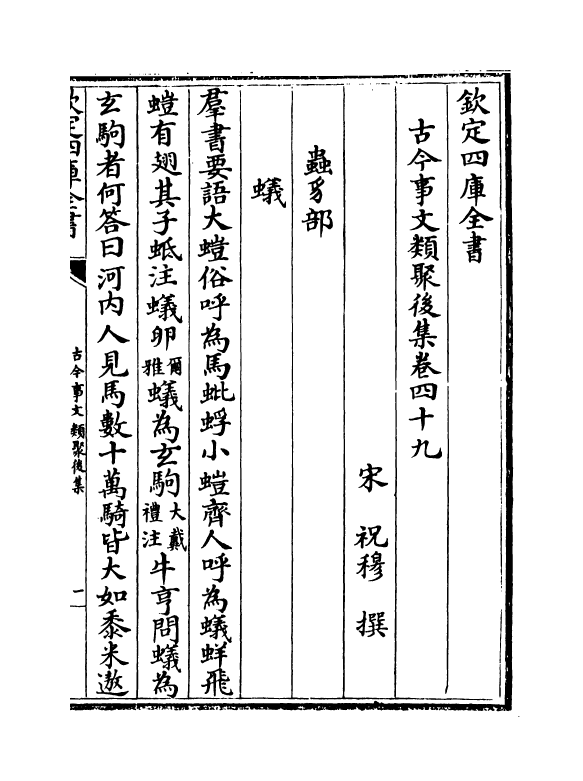 欽定四庫全書
古今事文類聚後集卷四十九
宋 祝穆 撰
蟲豸部
蟻
羣書要語大螘俗呼為馬蚍蜉小螘齊人呼為蟻蛘飛
螘有翅其子蚳注蟻卵爾雅蟻為玄駒大戴禮注牛亨問蟻為
玄駒者何答曰河内人見馬數十萬騎皆大如黍米遨
欽定四庫全書
古今事文類聚後集
一